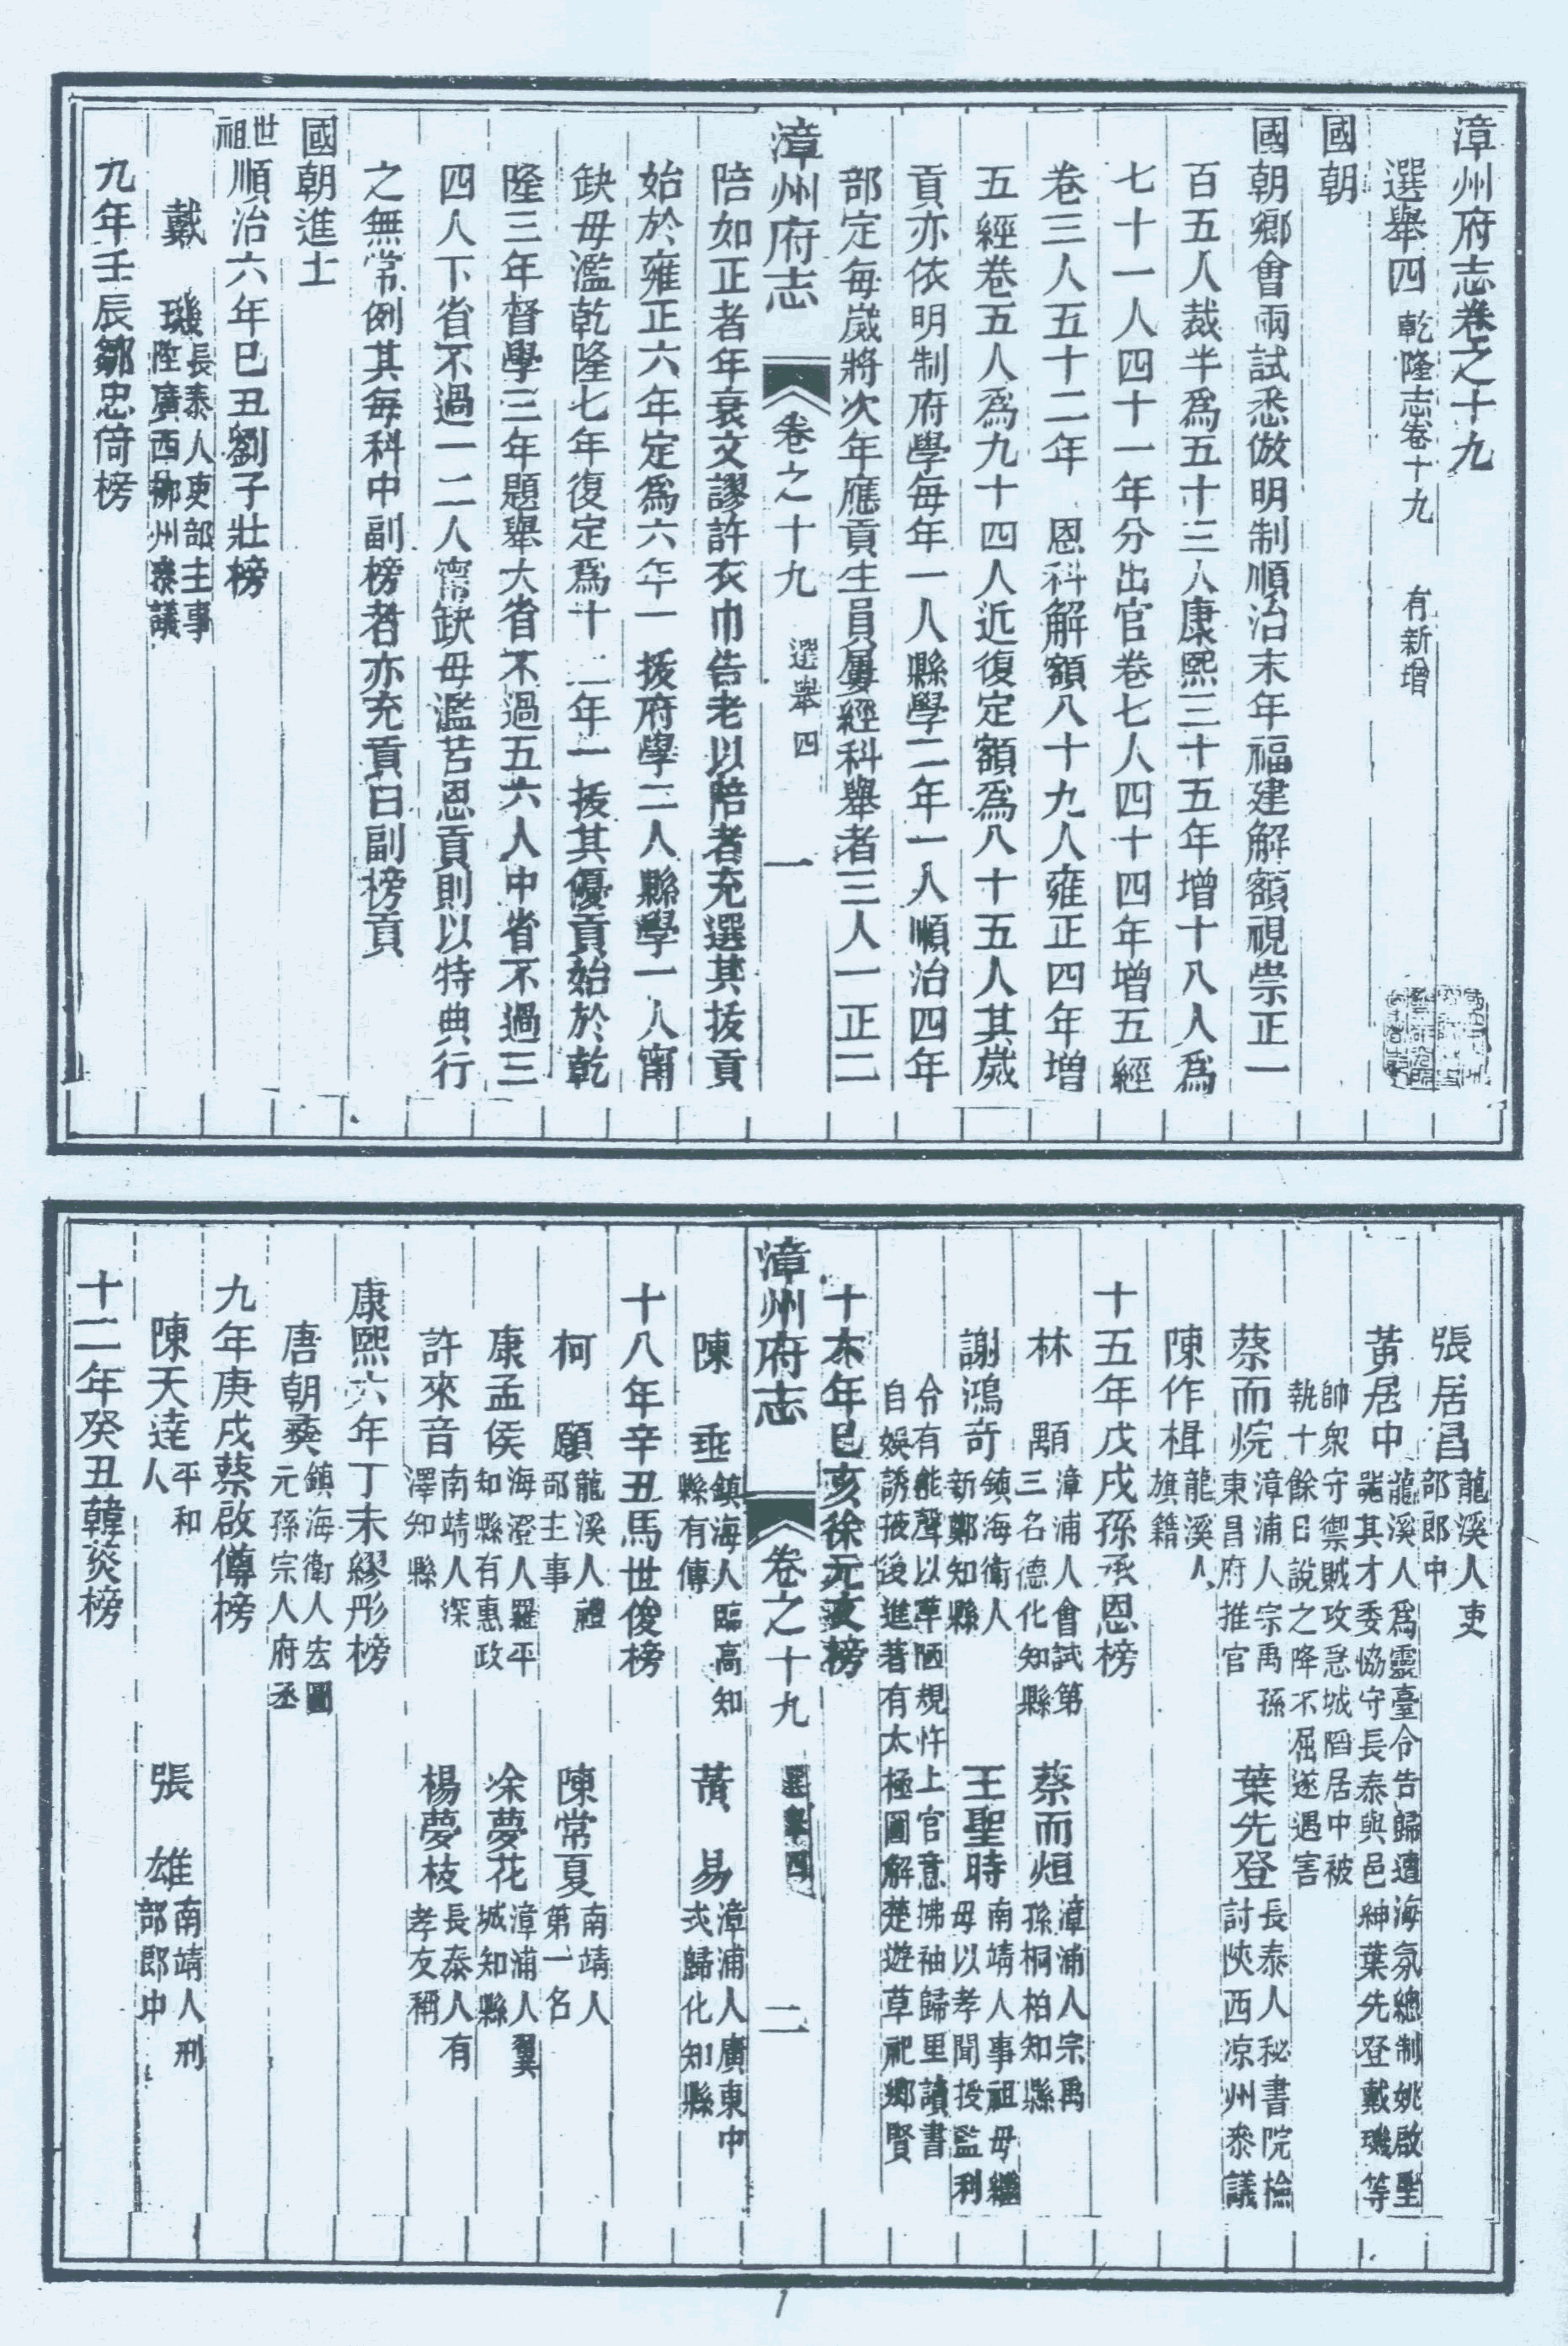 漳州府志卷之十九
選舉四 乾隆志卷十九 有新增
國朝
國朝鄉會兩試悉倣明制順治末年福建解額視崇正一
百五人裁半爲五十三人康熙三十五年增十八人爲
七十一人四十一年分出官卷七人四十四年增五經
卷三人五十二年 恩科解額八十九人雍正四年增
五經卷五人爲九十四人近復定額爲八十五人其歲
貢亦依明制府學每年一人縣學二年一人順治四年
部定每歲將次年應貢生員屢經科舉者三人一正二
漳州府志 卷之十九 選舉四 一
陪如正者年衰文謬許衣巾告老以陪者充選其拔貢
始於雍正六年定爲六年一拔府學二人縣學一人甯
缺毋濫乾隆七年復定爲十二年一拔其優貢始於乾
隆三年督學三年題舉大省不過五六人中省不過三
四人下省不過一二人甯缺毋濫若恩貢則以特典行
之無常例其每科中副榜者亦充貢曰副榜貢
國朝進士
世祖順治六年己丑劉子壯榜
戴璣 長泰人吏部主事陞廣西柳州叅議
九年壬辰鄒忠倚榜
張居昌 龍溪人吏部郎中
黃居中 龍溪人爲靈臺令告歸遭海氛總制姚啟聖器其才委協守長泰與邑紳葉先登戴璣等
帥衆守禦賊攻急城陷居中被執十餘日說之降不屈遂遇害
蔡而烷 漳浦人宗禹孫東昌府推官 葉先登 長泰人秘書院檢討陜西凉州叅議
陳作楫 龍溪人旗籍
十五年戊戌孫承恩榜
林顒 漳浦人會試第三名德化知縣 蔡而烜 漳浦人宗禹孫桐柏知縣
謝鴻奇 鎮海衛人新鄭知縣 王聖時 南靖人事祖母繼母以孝聞授監利
令有能聲以革陋規忤上官意拂袖歸里讀書自娛誘掖後進著有太極圖解楚遊草祀鄉賢
十六年己亥徐元文榜
漳州府志 卷之十九 選舉四 二
陳垂 鎮海人臨高知縣有傳 黃易 漳浦人廣東中式歸化知縣
十八年辛丑馬世俊榜
柯願 龍溪人禮部主事 陳常夏 南靖人第一名
康孟侯 海澄人羅平知縣有惠政 涂夢花 漳浦人翼城知縣
許來音 南靖人深澤知縣 楊夢枝 長泰人有孝友稱
康熙六年丁未繆彤榜
唐朝彝 鎮海衛人宏圖元孫宗人府丞
九年庚戌蔡啟僔榜
陳天達 平和人 張雄 南靖人刑部郎中
十二年癸丑韓菼榜
1